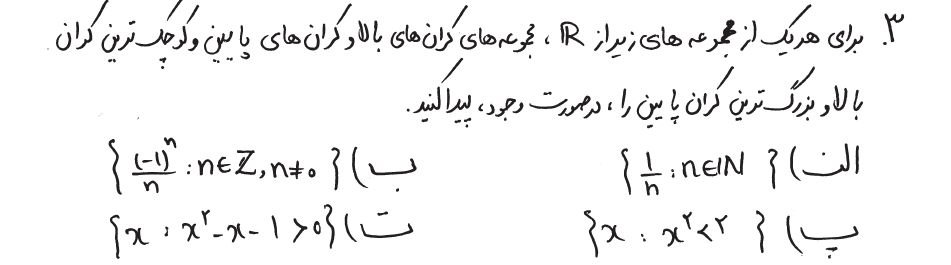 ۳. برای هر یک از مجموعه های زیر از ℝ ، مجموعه های کران های بالا و کران های پایین و کوچک ترین کران
بالا و بزرگ ترین کران پایین را ، در صورت وجود ، پیدا کنید .
الف) {1/n : n∈ℕ} ب) {(-1)^n/n : n∈ℤ, n≠0}
پ) {x : x^۲<۲} ت) {x : x^۲-x-1>0}